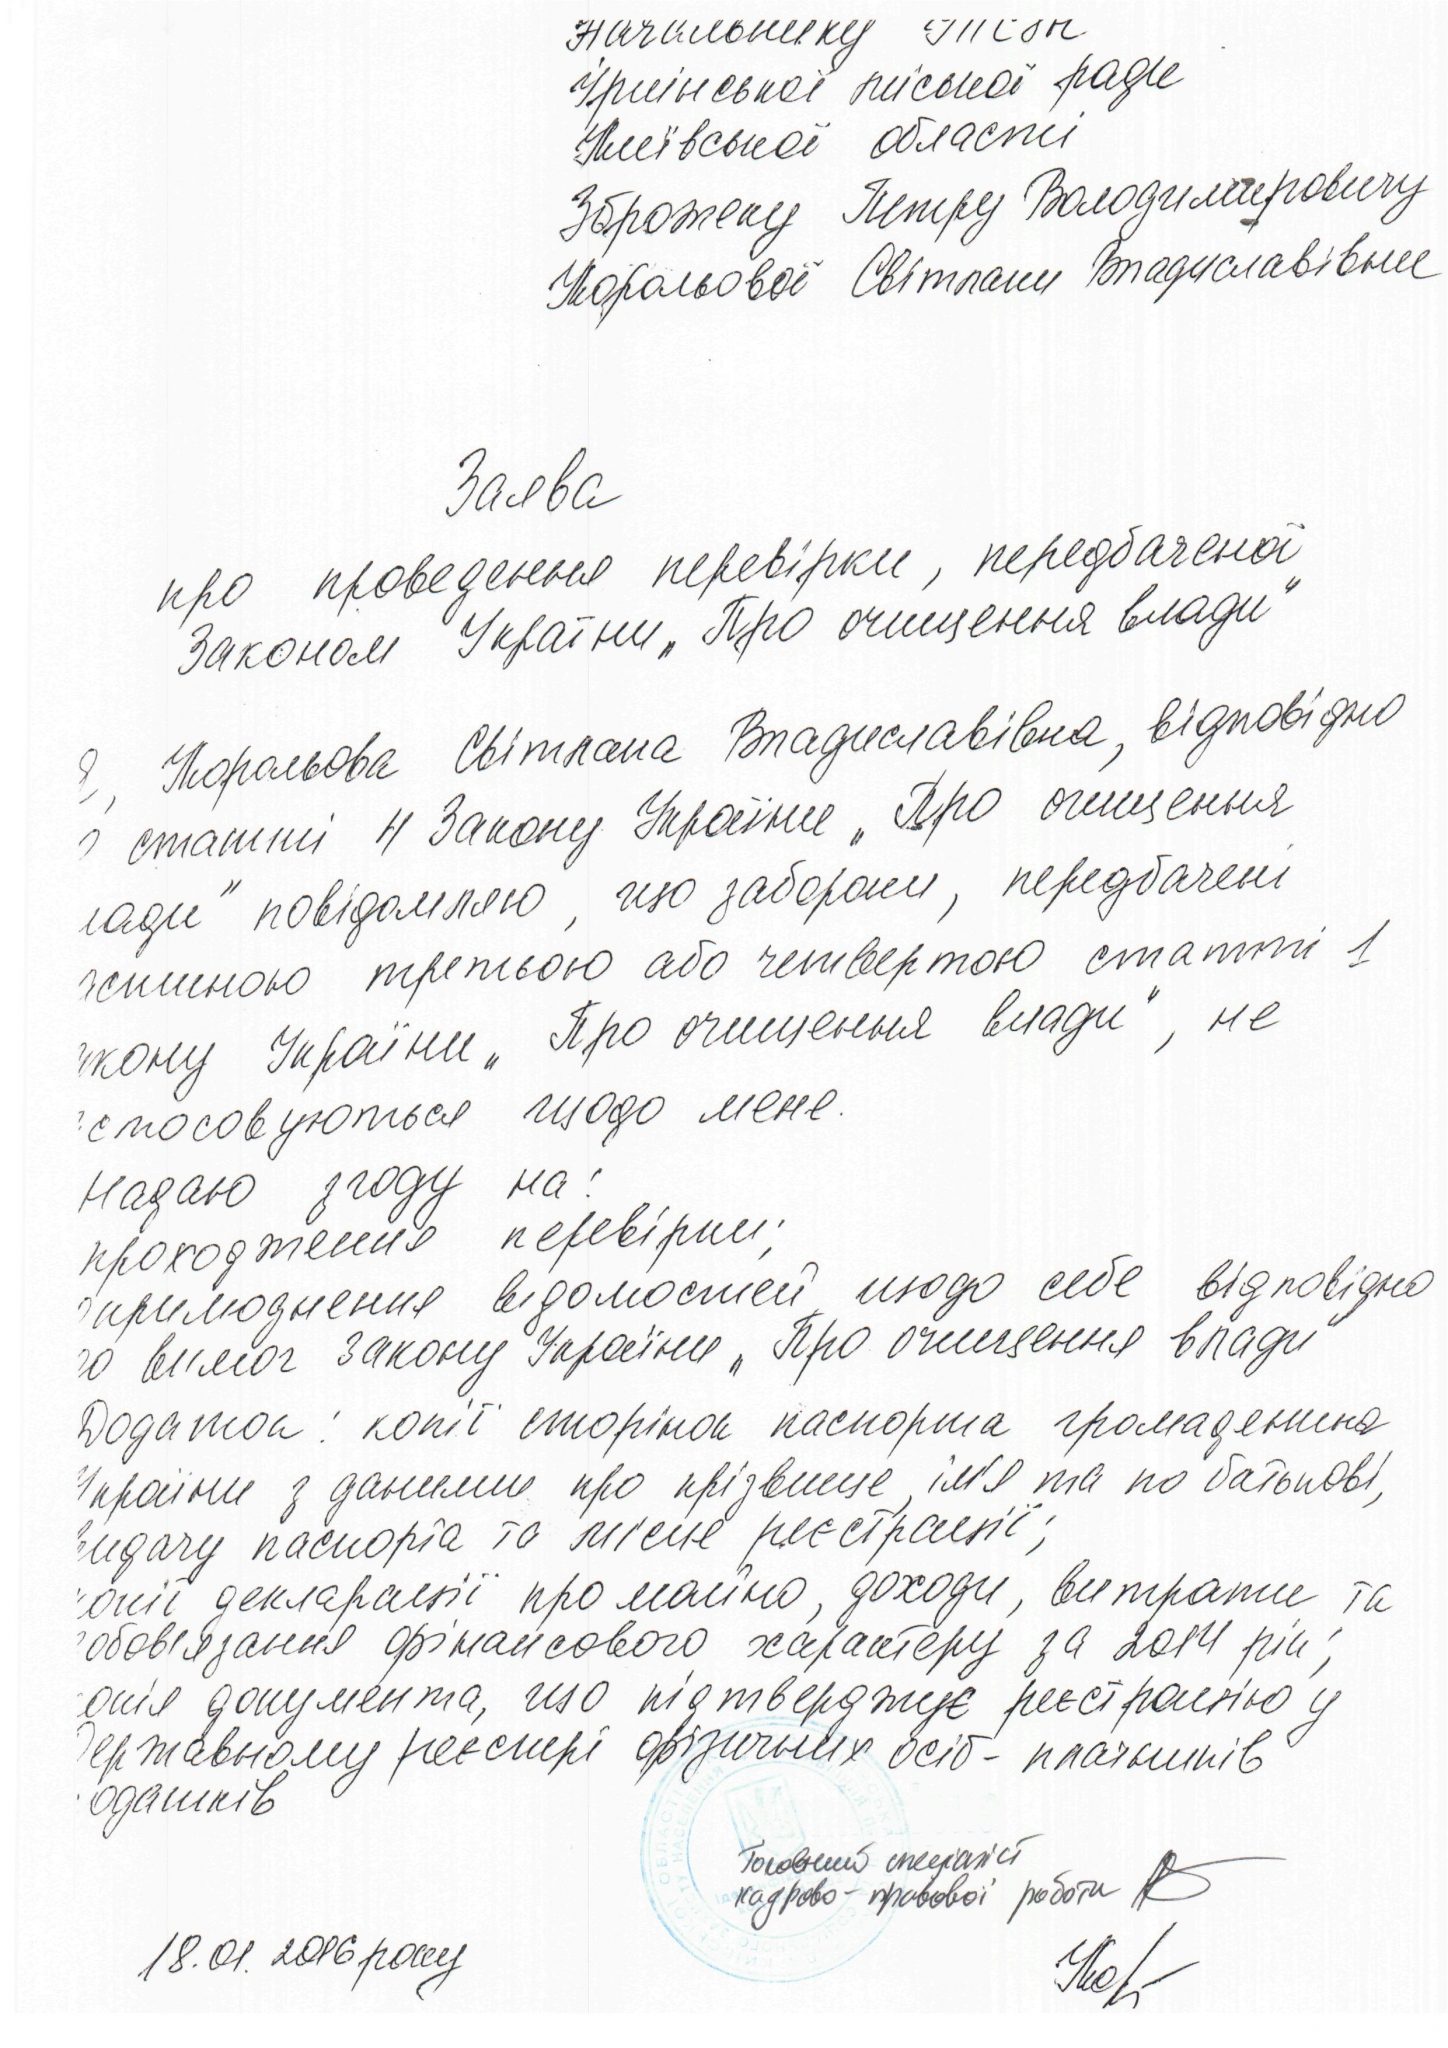 Начальнику УПСЗН
Ірпінської міської ради
Київської області
Зброжеку Петру Володимировичу
Корольової Світлани Владиславівни
Заява
про проведення перевірки, передбаченої
Законом України „Про очищення влади"
Я, Корольова Світлана Владиславівна, відповідно
о статті 4 Закону України „Про очищення
лади" повідомляю, що заборони, передбачені
астиною третьою або четвертою статті 1
акону України „Про очищення влади", не
астосовуються щодо мене.
Надаю згоду на:
проходження перевірки;
оприлюднення відомостей щодо себе відповідно
до вимог Закону України „Про очищення влади"
Додаток: копії сторінок паспорта громадянина
України з даними про прізвище, ім'я та по батькові,
видачу паспорта та місце реєстрації;
копії декларації про майно, доходи, витрати та
зобов'язання фінансового характеру за 2014 рік;
копія документа, що підтверджує реєстрацію у
Державному реєстрі фізичних осіб - платників
податків
Головний спеціаліст
кадрово-правової роботи
18.01.2016 року